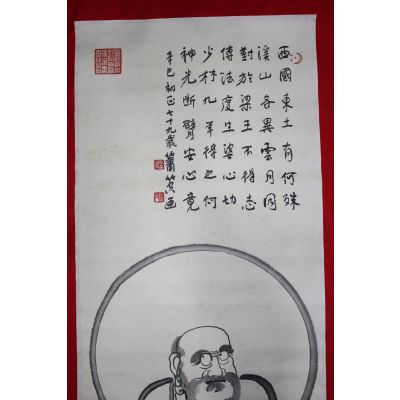 西國東土有何殊
溪山各異雲月同
對於梁王不得志
傳法度生婆心切
少林九年得已何
神光断臂安心竟
辛巳初正七十九歲 笑画